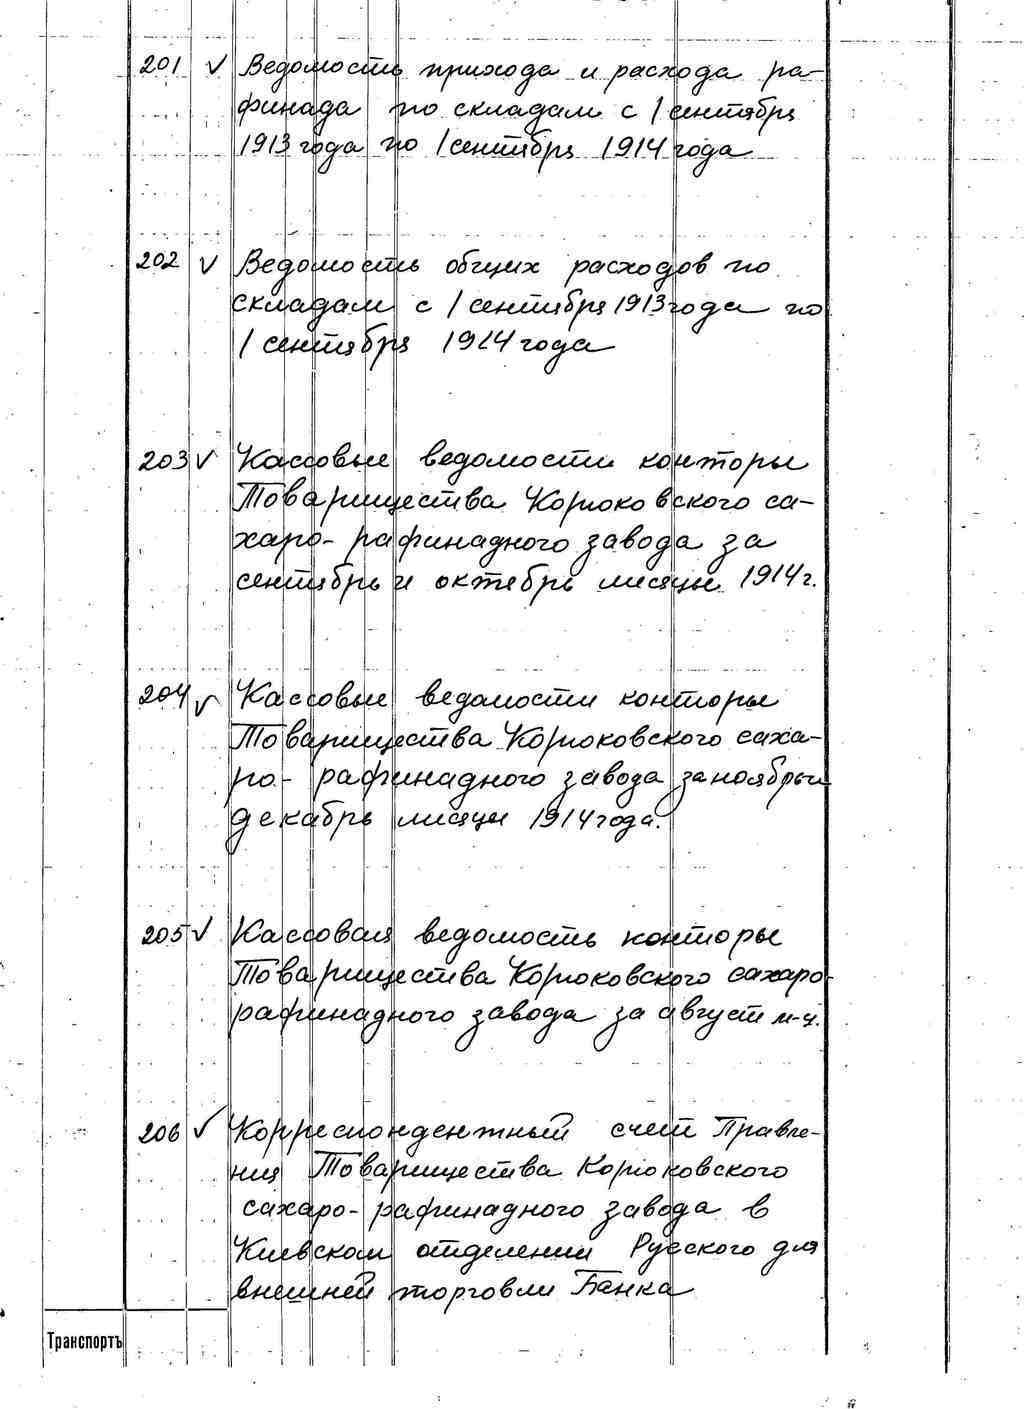 201 √ Ведомость прихода и расхода ра-
финада по складам с 1 сентября
1913 года по 1 сентября 1914 года
202 √ Ведомость общих расходов по
складам с 1 сентября 1913 года по
1 сентября 1914 года
203 √ Кассовые ведомости конторы
Товарищества Корюковского са-
харо-рафинадного завода за
сентябрь и октябрь месяцы 1914 г.
204 √ Кассовые ведомости конторы
Товарищества Корюковского саха-
ро-рафинадного завода за ноябрь и
декабрь месяцы 1914 года.
205 √ Кассовая ведомость конторы
Товарищества Корюковского сахаро-
рафинадного завода за август м-ц.
206 √ Корреспондентный счет Правле-
ния Товарищества Корюковского
сахаро-рафинадного завода в
Киевском отделении Русского для
внешней торговли Банка
Транспортъ